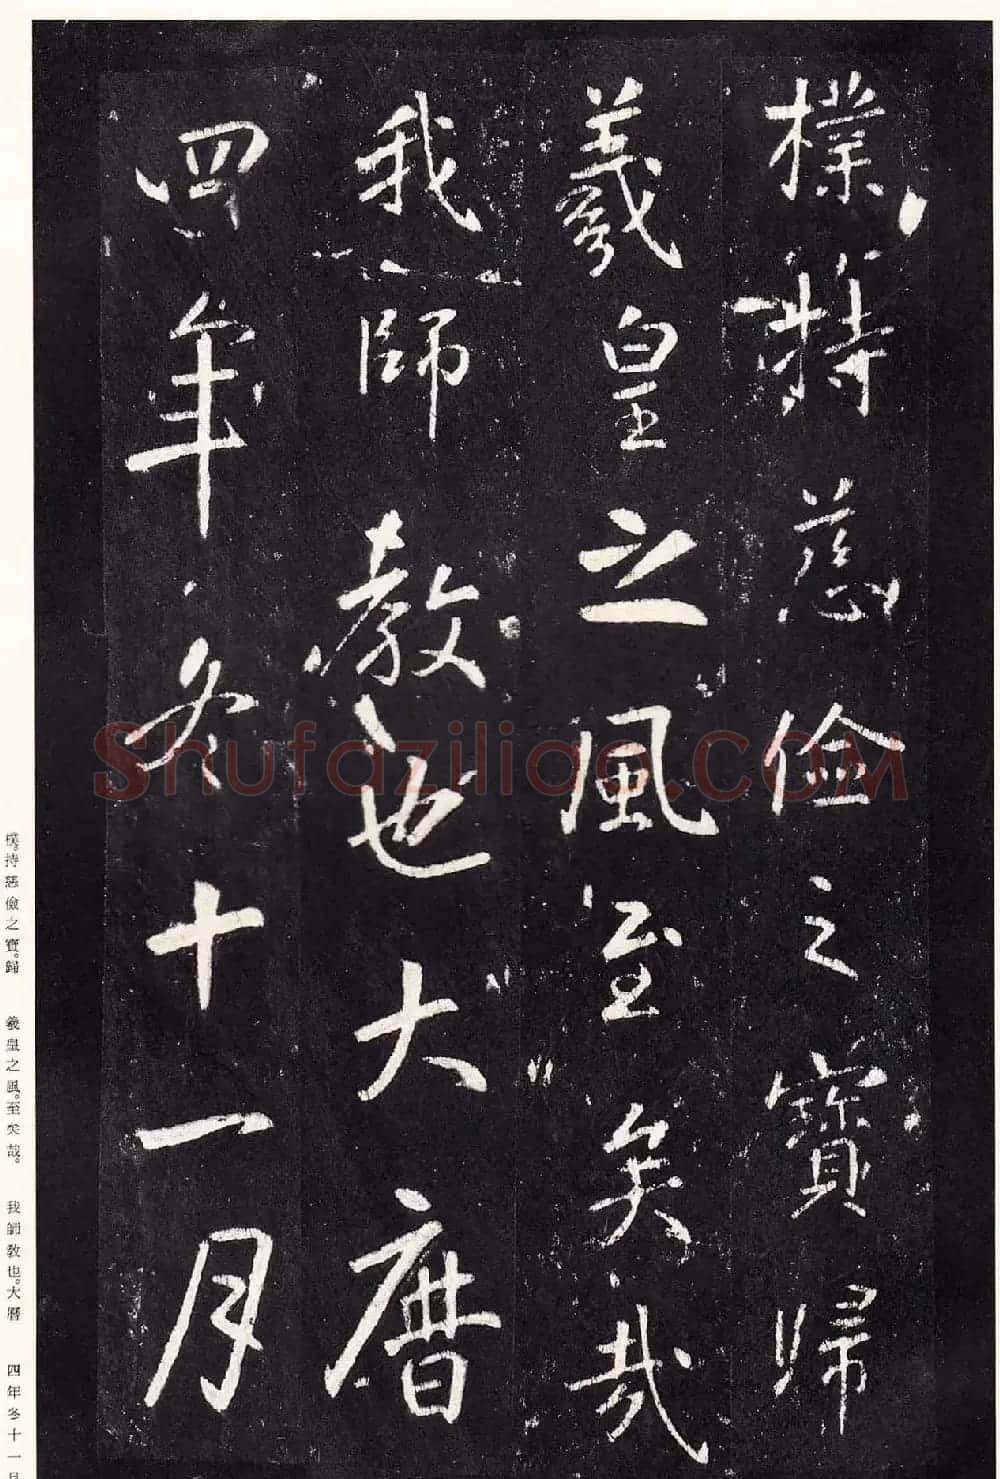 樸持慈儉之寶歸
羲皇之風至矣哉
我師教也大曆
四年冬十一月
Shufaziliao.COM
樸。持慈儉之寶。歸 羲皇之風。至矣哉。 我師教也。大曆 四年冬十一月